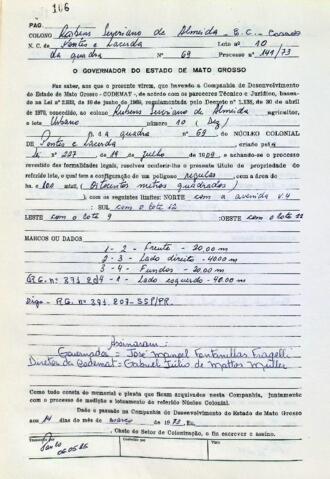 166
PÁG.
COLONO Rubens Seyriano de Almeida - E.C. - Casado
N. C. de Pontes e Lacerda Lote nº 10
da quadra Nº 69 Processo nº 141/73
O GOVERNADOR DO ESTADO DE MATO GROSSO
Faz saber, aos que o presente virem, que havendo a Companhia de Desenvolvimento
do Estado de Mato Grosso - CODEMAT -, de acôrdo com os pareceres Técnico e Jurídico, basea-
de 1970, concedido ao colono, Rubens Severiano de Almeida agricultor,
o lote Urbano número 10 (Dez)
n. da quadra nº 69 do NÚCLEO COLONIAL
de Pontes e Lacerda, criado pela
Lei 227 de 14 de julho de e achando-se o processo
revestido das formalidades legais, resolveu conferir-lhe o presente título de propriedade do
referido lote, o qual tem a configuração de um polígono regular com a área de
ha e 800 mts2, (Oitocentos metros quadrados)
e, com os seguintes limites: NORTE com a avenida
: SUL com o lote 12
LESTE com o lote 9 :OESTE com o lote 11
MARCOS OU DADOS
1 - 2 - Frente - 20.00 m
2 - 3 - Lado direito - 40.00 m
3 - 4 - Fundos - 20.00 m
4 - 1 - Lado esquerdo - 40.00 m.
Digo - R.G. nº 391.807-SSP/PR.
Assinaram:
Governador = José Manoel Fontanillas Fragelli
Diretor da Codemat = Gabriel Júlio de Mattos Müller
Como tudo consta do memorial e planta que ficam arquivados nesta Companhia, juntamente
com o processo de medição e loteamento do referido Núcleo Colonial.
Dado e passado na Companhia de Desenvolvimento do Estado de Mato Grosso
aos 14 dias do mês de março de 1973. Eu,
, Chefe do Setor de Colonização, o fiz escrever e assino.
Transcrito por
Conferido por
Visto